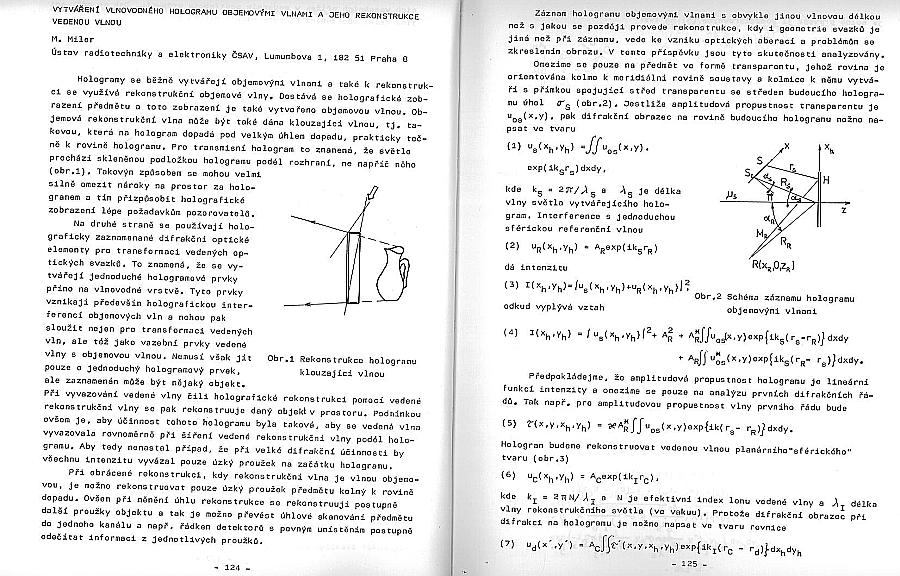 VYTVÁŘENÍ VLNOVODNÉHO HOLOGRAMU OBJEMOVÝMI VLNAMI A JEHO REKONSTRUKCE
VEDENOU VLNOU
M. Miler
Ústav radiotechniky a elektroniky ČSAV, Lumumbova 1, 182 51 Praha 8
Hologramy se běžně vytvářejí objemovými vlnami a také k rekonstruk-
ci se využívá rekonstrukční objemové vlny. Dostává se holografické zob-
razení předmětu a toto zobrazení je také vytvořeno objemovou vlnou. Ob-
jemová rekonstrukční vlna může být také dána klouzající vlnou, tj. ta-
kovou, která na hologram dopadá pod velkým úhlem dopadu, prakticky toč-
ně k rovině hologramu. Pro transmisní hologram to znamená, že světlo
prochází skleněnou podložkou hologramu podél rozhraní, ne napříč něho
(obr.1). Takovým způsobem se mohou velmi
silně omezit nároky na prostor za holo-
gramem a tím přizpůsobit holografické
zobrazení lépe požadavkům pozorovatelů.
Na druhé straně se používají holo-
graficky zaznamenané difrakční optické
elementy pro transformaci vedených op-
tických svazků. To znamená, že se vy-
tvářejí jednoduché hologramové prvky
přímo na vlnovodné vrstvě. Tyto prvky
vznikají především holografickou inter-
ferencí objemových vln a mohou pak
sloužit nejen pro transformaci vedených
vln, ale též jako vazební prvky vedené
vlny s objemovou vlnou. Nemusí však jít
pouze o jednoduchý hologramový prvek,
ale zaznamenán může být nějaký objekt.
Obr.1 Rekonstrukce hologramu
klouzající vlnou
Při vyvazování vedené vlny čili holografické rekonstrukci pomocí vedené
rekonstrukční vlny se pak rekonstruuje daný objekt v prostoru. Podmínkou
ovšem je, aby účinnost tohoto hologramu byla taková, aby se vedená vlna
vyvazovala rovnoměrně při šíření vedené rekonstrukční vlny podél holo-
gramu. Aby tedy nenastal případ, že při velké difrakční účinnosti by
všechnu intenzitu vyvázal pouze úzký proužek na začátku hologramu.
Při obrácené rekonstrukci, kdy rekonstrukční vlna je vlnou objemo-
vou, je možno rekonstruovat pouze úzký proužek předmětu kolmý k rovině
dopadu. Ovšem při měnění úhlu rekonstrukce se rekonstruují postupně
další proužky objektu a tak je možno převést úhlové skanování předmětu
do jednoho kanálu a např. řádkem detektorů s pevným umístěním postupně
odečítat informaci z jednotlivých proužků.
- 124 -
Záznam hologramu objemovými vlnami s obvykle jinou vlnovou délkou
než s jakou se později provede rekonstrukce, kdy i geometrie svazků je
jiná než při záznamu, vede ke vzniku optických aberací a problémům se
zkreslením obrazu. V tomto příspěvku jsou tyto skutečnosti analyzovány.
Omezíme se pouze na předmět ve formě transparentu, jehož rovina je
orientována kolmo k meridiální rovině soustavy a kolmice k němu vytvá-
ří s přímkou spojující střed transparentu se středem budoucího hologra-
mu úhel σ_S (obr.2). Jestliže amplitudová propustnost transparentu je
u_os(x,y), pak difrakční obrazec na rovině budoucího hologramu možno na-
psat ve tvaru
(1) u_s(x_h,y_h) = ∫∫u_os(x,y).
exp(ik_s r_s)dxdy,
kde k_S = 2π/λ_S a λ_S je délka
vlny světla vytvářejícího holo-
gram. Interference s jednoduchou
sférickou referenční vlnou
(2) u_R(x_h,y_h) = A_R exp(ik_s r_R)
dá intenzitu
(3) I(x_h,y_h)=|u_s(x_h,y_h)+u_R(x_h,y_h)|²,
odkud vyplývá vztah
x x_h S r_s S_r R_s H μ_s z α_R M_R R_R
R(x_R,0,z_R)
Obr.2 Schéma záznamu hologramu
objemovými vlnami
(4) I(x_h,y_h) = |u_s(x_h,y_h)|² + A_R² + A_R^*∫∫u_os(x,y)exp{ik_s(r_s-r_R)} dxdy
+ A_R∫∫u_os^*(x,y)exp{ik_s(r_R- r_s)}dxdy.
Předpokládejme, že amplitudová propustnost hologramu je lineární
funkcí intenzity a omezíme se pouze na analýzu prvních difrakčních řá-
dů. Tak např. pro amplitudovou propustnost vlny prvního řádu bude
(5) τ(x,y,x_h,y_h) = ϰA_R^*∫∫u_os(x,y)exp{ik(r_s- r_R)}dxdy.
Hologram budeme rekonstruovat vedenou vlnou planárního"sférického"
tvaru (obr.3)
(6) u_C(x_h,y_h) = A_C exp(ik_I r_C),
kde k_I = 2πN/λ_I a N je efektivní index lomu vedené vlny a λ_I délka
vlny rekonstrukčního světla (ve vakuu). Protože difrakční obrazec při
difrakci na hologramu je možno napsat ve tvaru rovnice
(7) u_d(x´,y´) = A_C∫∫τ(x,y,x_h,y_h)exp{ik_I(r_C - r_d)}dx_h dy_h
- 125 -